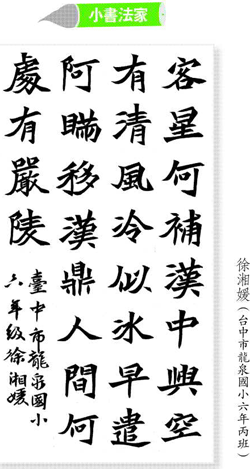 小書法家
客星何補漢中興空
有清風冷似冰早遣
阿瞞移漢鼎人間何
處有嚴陵
臺中市龍泉國小
六年級徐湘媛
徐湘媛（台中市龍泉國小六年丙班）